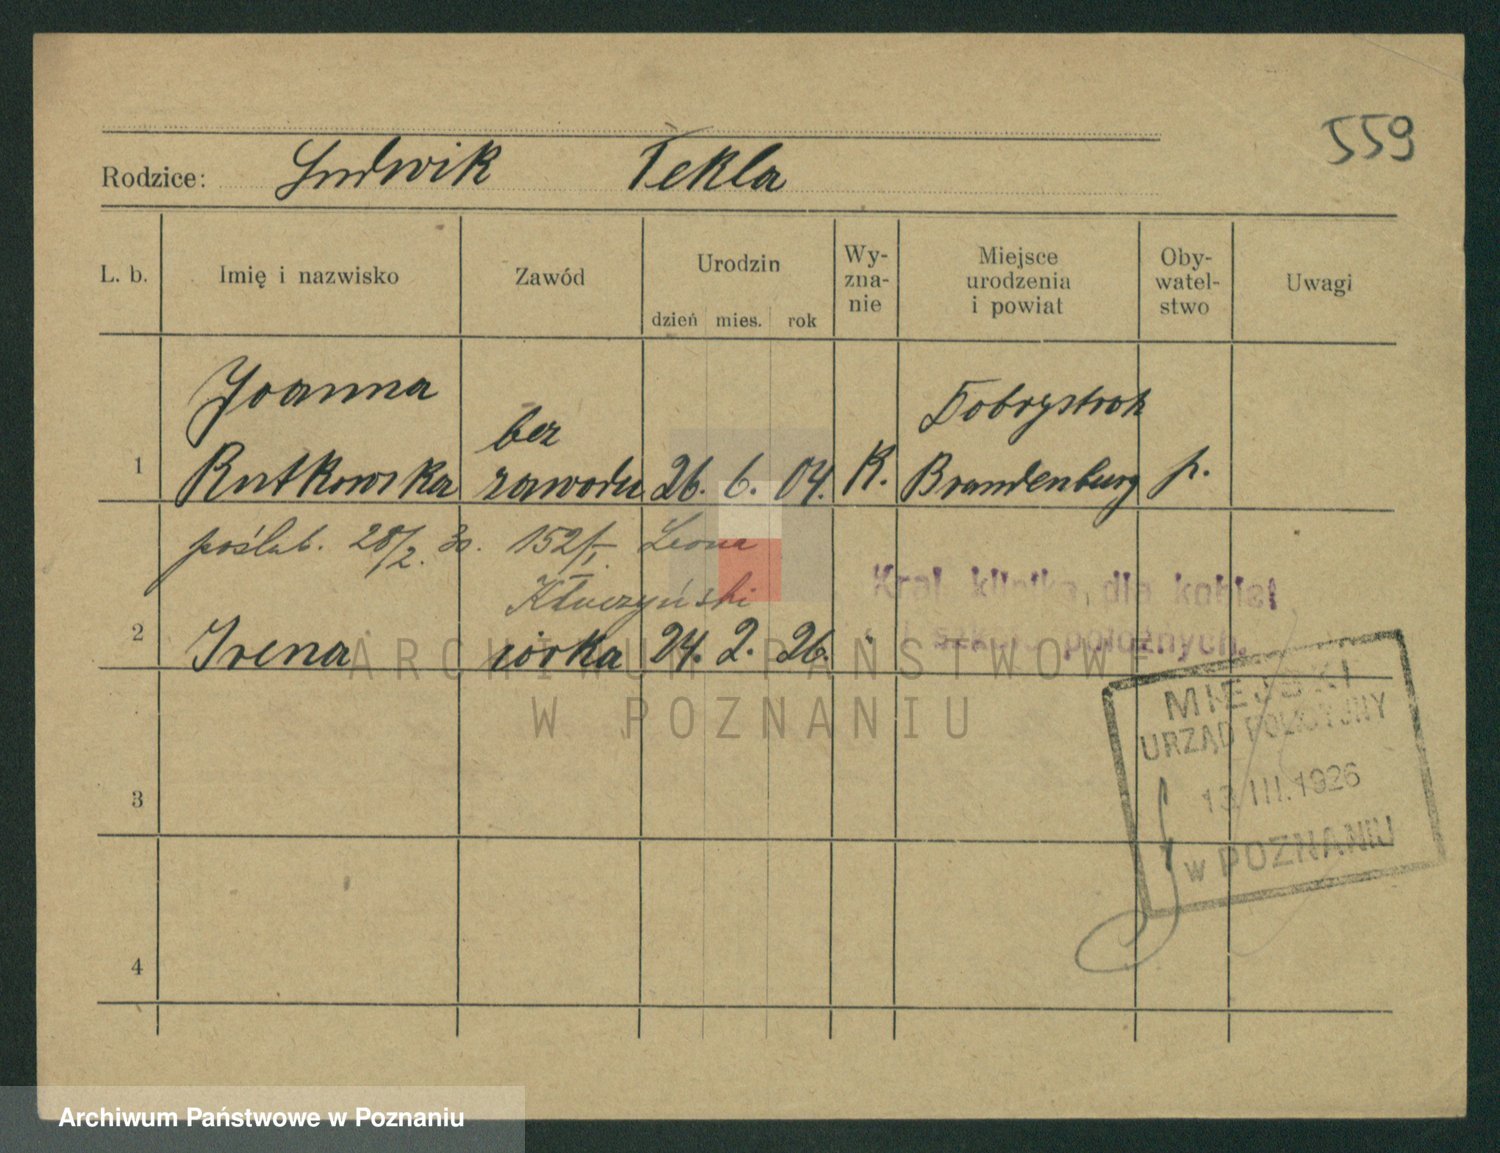 559
Rodzice: Ludwik Tekla
L. b. Imię i nazwisko Zawód Urodzin dzień mies. rok Wy-zna-nie Miejsce urodzenia i powiat Oby-watel-stwo Uwagi
Joanna bez Dobrystroh
1 Rutkowska zawodu 26. 6. 04. K. Brandenburg p.
poślub. 28/2. 30. 152/I. Leona
Kłuczyński
Kral. klinika dla kobiet
2 Irena córka 24. 2. 26. "
i szkoła położnych.
ARCHIWUM PAŃSTWOWE
W POZNANIU
MIEJSKI
URZĄD POLICYJNY
3
13 III. 1926
w POZNANIU
4
Archiwum Państwowe w Poznaniu